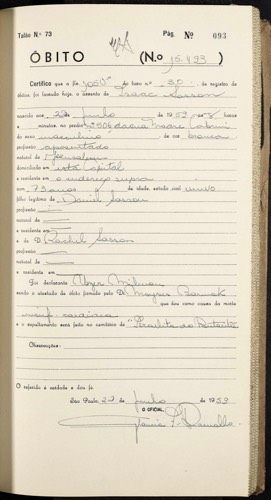 Talão N.º 73 Pág. Nº 093
ÓBITO (N.o 15.493)
Certifico que a fls. 100vº do livro n.º 30 de registro de
óbitos foi lavrado hoje, o assento de Isaac Sasson
falecido aos 22 de junho de 1959 às 8 horas
e minutos no prédio nº 506 da rua
do sexo masculino de cor branca
profissão aposentado
natural de Jerusalem
domiciliado em esta Capital
e residente em o endereço supra
com 73 anos de idade, estado civil viuvo
filho legítimo de Daniel Sasson
profissão
natural de
e residente em
e de D. Rachel Sasson
profissão
natural de
e residente em
Foi declarante
sendo o atestado de óbito firmado pelo Dr. Moyses
que deu como causa da morte
insuf. cardíaca
e o sepultamento será feito no cemitério de "Israelita do Butantã"
Observações:
O referido é verdade e dou fé.
São Paulo, 22 de junho de 1959
O OFICIAL,